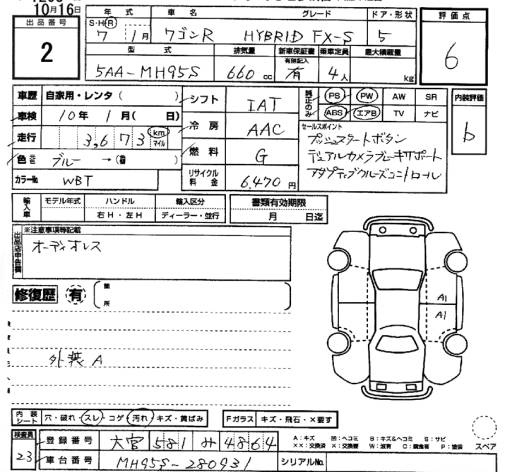 10月16日
出品番号 年式 車名 グレード ドア・形状 評価点
2 S・H・R 7 1月 ワゴンR HYBRID FX-S 5 6
型式 排気量 新車保証書 乗車定員 最大積載量
有限記入
5AA-MH95S 660cc 有 4人 kg
車歴 自家用・レンタ( ) シフト IAT 純正のみ PS PW AW SR 内装評価
車検 10年1月( 日) 冷房 AAC ABS エアB TV ナビ b
走行 3,673 km マイル 燃料 G セールスポイント
プッシュスタートボタン
色 ブルー→( ) リサイクル料金 6,470円 デュアルカメラブレーキサポート
カラーNo. WBT アダプティブクルーズコントロール
輸入車 モデル年式 ハンドル 輸入区分 書類有効期限
年 右H・左H ディーラー・並行 月 日迄
※注意事項等記載
オーディオレス
修復歴 有 箇所
A1
A1
外装A
内装シート 穴・破れ・スレ・コゲ・汚れ・キズ・黄ばみ Fガラス キズ・飛石・×要す
検査員 登録番号 大宮 581 み 4864
23 車台番号 MH95S-280931 シリアルNo.
A:キズ B:キズ&ヘコミ S:サビ
スペア